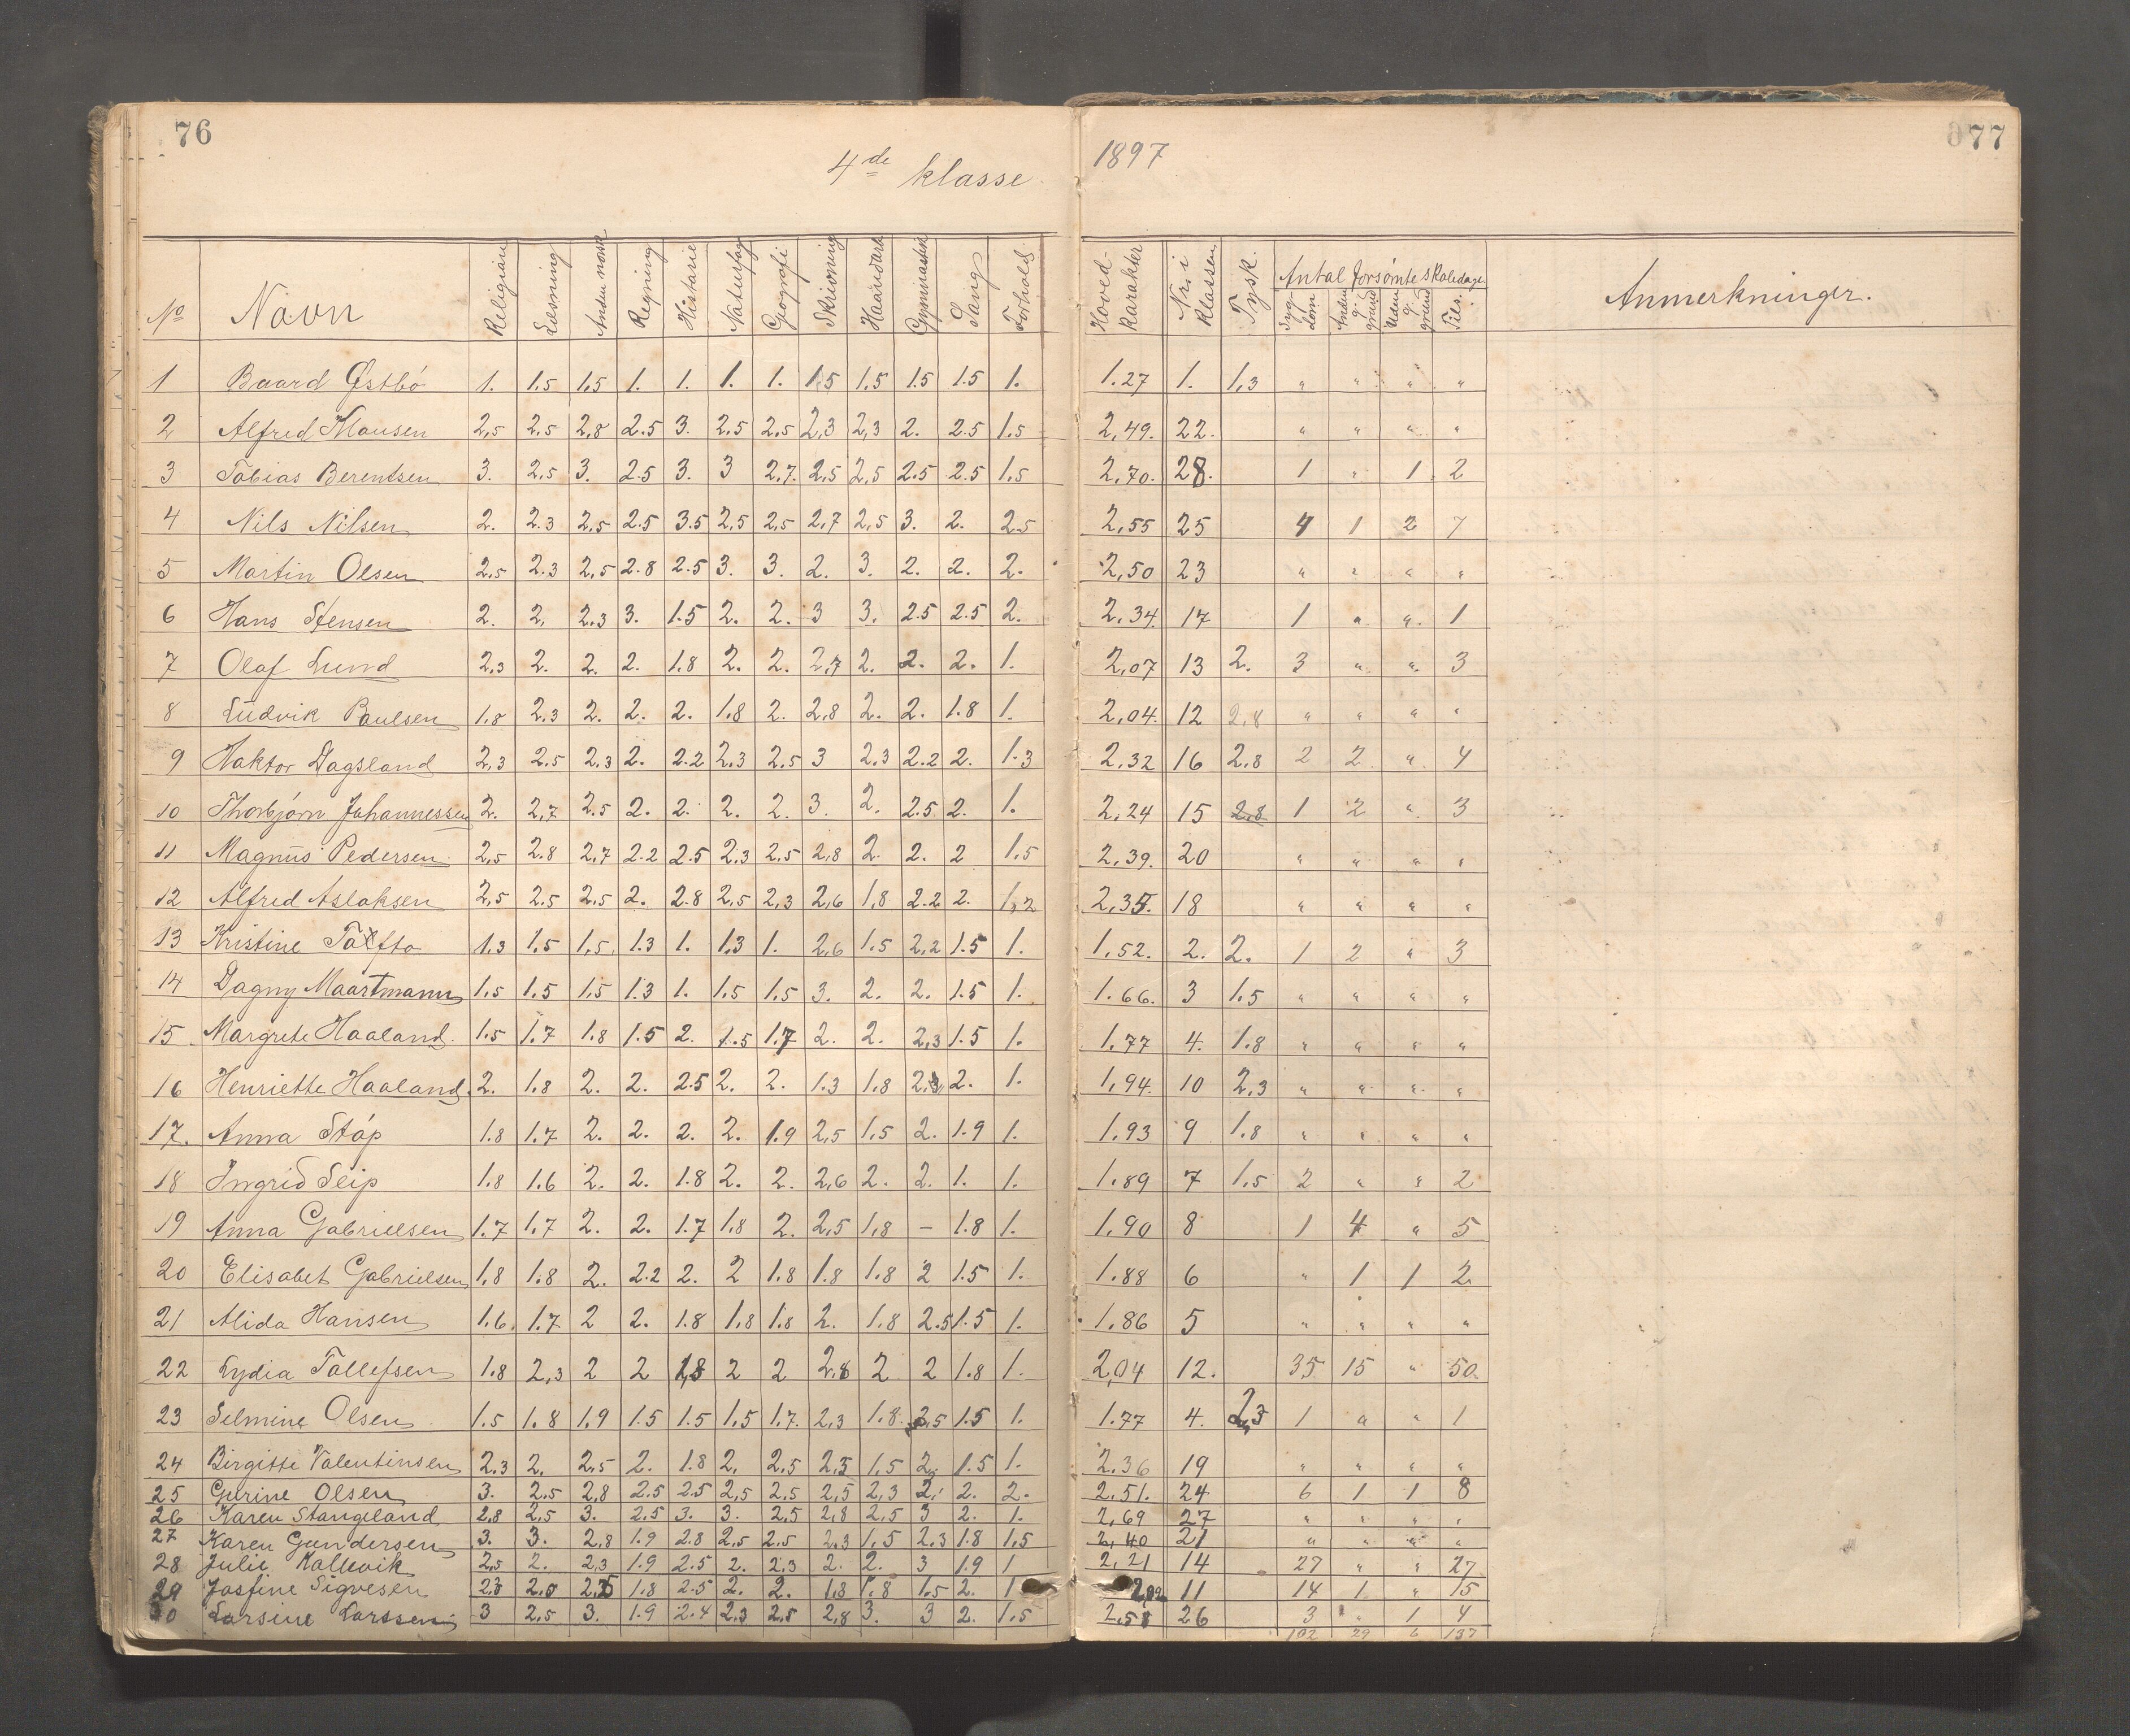 76
4de klasse
1897
77
No Navn Religion Læsning Anden norsk Regning Historie Naturfag Geografi Skrivning Haandarb Gymnastik Sang Forhold Hoved-Karakter Nr. i klassen Tysk. Antal forsømte skoledage Sygdom Anden g. grund Uden g. grund Tils. Anmerkninger.
1 Baard Østbö 1. 1.5 1,5 1. 1. 1. 1. 1.5 1,5 1.5 1.5 1. 1.27 1. 1,3 " " " "
2 Alfred Mausen 2,5 2.5 2,8 2.5 3. 2.5 2,5 2,3 2,3 2. 2.5 1.5 2,49. 22. " " " "
3 Tobias Berentsen 3. 2,5 3. 2.5 3. 3 2,7. 2,5 2,5 2.5 2.5 1.5 2,70. 28. 1 " 1 2
4 Nils Nilsen 2. 2.3 2,5 2.5 3.5 2,5 2,5 2,7 2,5 3. 2. 2.5 2,55 25 4 1 2 7
5 Martin Olsen 2,5 2.3 2,5 2.8 2.5 3. 3. 2. 3. 2. 2. 2. 2,50 23 " " " "
6 Hans Stensen 2. 2, 2,3 3. 1.5 2. 2. 3 3. 2.5 2.5 2. 2,34. 17 1 " " 1
7 Olaf Lund 2,3 2. 2. 2. 1.8 2. 2. 2,7 2. 2. 2. 1. 2,07 13 2. 3 " " 3
8 Ludvik Paulsen 1.8 2,3 2. 2. 2. 1.8 2. 2,8 2. 2. 1.8 1. 2,04. 12 2,8 " " " "
9 Haktor Dagsland 2,3 2.5 2.3 2. 2.2 2,3 2.5 3 2.3 2.2 2. 1.3 2,32 16 2,8 2 2 " 4
10 Thorbjørn Johannessen 2. 2,7 2.5 2. 2. 2. 2. 3. 2. 2.5 2. 1. 2,24 15 2,8 1 2 " 3
11 Magnus Pedersen 2,5 2.8 2,7 2.2 2.5 2.3 2,5 2,8 2. 2. 2 1,5 2,39. 20 " " " "
12 Alfred Aslaksen 2,5 2.5 2,5 2. 2.8 2,5 2,3 2,6 1,8 2.2 2. 1,2 2,35. 18 " " " "
13 Kristine Toftto 1.3 1.5 1,5. 1.3 1. 1.3 1. 2,6 1.5 2,2 1.5 1. 1,52. 2. 2. 1 2 " 3
14 Dagny Maartmann 1.5 1.5 1,5 1.3 1. 1.5 1.5 3. 2. 2. 1.5 1. 1.66. 3 1.5 " " " "
15 Margrete Haaland. 1.5 1.7 1.8 1.5 2. 1.5 1.7 2. 2. 2,3 1.5 1. 1.77 4. 1.8 " " " "
16 Henriette Haaland. 2. 1.8 2. 2. 2.5 2. 2. 1.3 1.8 2.3 2. 1. 1,94. 10 2,3 " " " "
17. Anna Støp 1.8 1.7 2. 2. 2. 2. 1.9 2,5 1.5 2. 1.9 1. 1.93 9 1.8 " " " "
18 Ingrid Seip 1.8 1.6 2. 2. 1.8 2. 2. 2,6 2. 2. 1. 1. 1.89 7 1.5 2 " " 2
19 Anna Gabrielsen 1.7 1,7 2. 2. 1.7 1,8 2. 2,5 1,8 – 1.8 1. 1,90 8 1 4 " 5
20 Elisabet Gabrielsen 1.8 1.8 2. 2.2 2. 2 1.8 1.8 1.8 2 1.5 1. 1.88 6 " 1 1 2
21 Alida Hansen 1.6. 1.7 2 2. 1.8 1.8 1.8 2. 1.8 2.5 1.5 1. 1.86 5 " " " "
22 Lydia Tollefsen 1.8 2,3 2 2 1,8 2 2 2.8 2 2 1.8 1. 2,04 12. 35 15 " 50.
23 Selmine Olsen 1.5 1.8 1.9 1.5 1.5 1.5 1.7. 2,3 1.8. 2,5 1.5 1. 1.77 4. 2,3 1 " " 1
24 Birgitte Valentinsen 2.3 2. 2,5 2. 1.8 2, 2.5 2.5 1.5 2. 1.5 1. 2.36 19 " " " "
25 Gurine Olsen 3. 2.5 2,8 2.5 2.5 2,5 2.5 2,5 2,3 2. 2. 2. 2.51. 24 6 1 1 8
26 Karen Stangeland 2,8 2,5 3. 2.5 3. 3. 2,5 2,8 2,5 3 2. 1. 2,69 27 " " " "
27 Karen Gundersen 3. 3. 2,8 1.9 2.8 2,5 2.5 2.3 1.5 2.3 1.8 1,5 2,40 21 " " " "
28 Julie Kallevik 2,5 2. 2,3 1.9 2.5 2. 2,3 2. 2. 3 1.9 1 2,21 14 27 " " 27
29 Josfine Sigvesen 2.3 2.0 2,5 1.8 2.5 2. 2. 1.8 1.8 1.5 2. 1 2,02 11 14 1 " 15
30 Larsine Larssen 3 2,5 3. 1.9 2.4 2,3 2,5 2,8 3. 3 2. 1.5 2,58 26 3 " 1 4
102 29 6 137